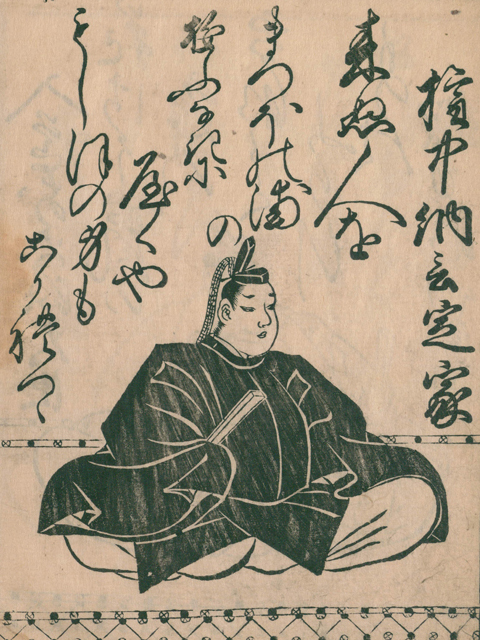 権中納言定家
来ぬ人を
まつほの浦
の
ゆふなぎに
屋くや
もしほの身も
こか禮つゝ